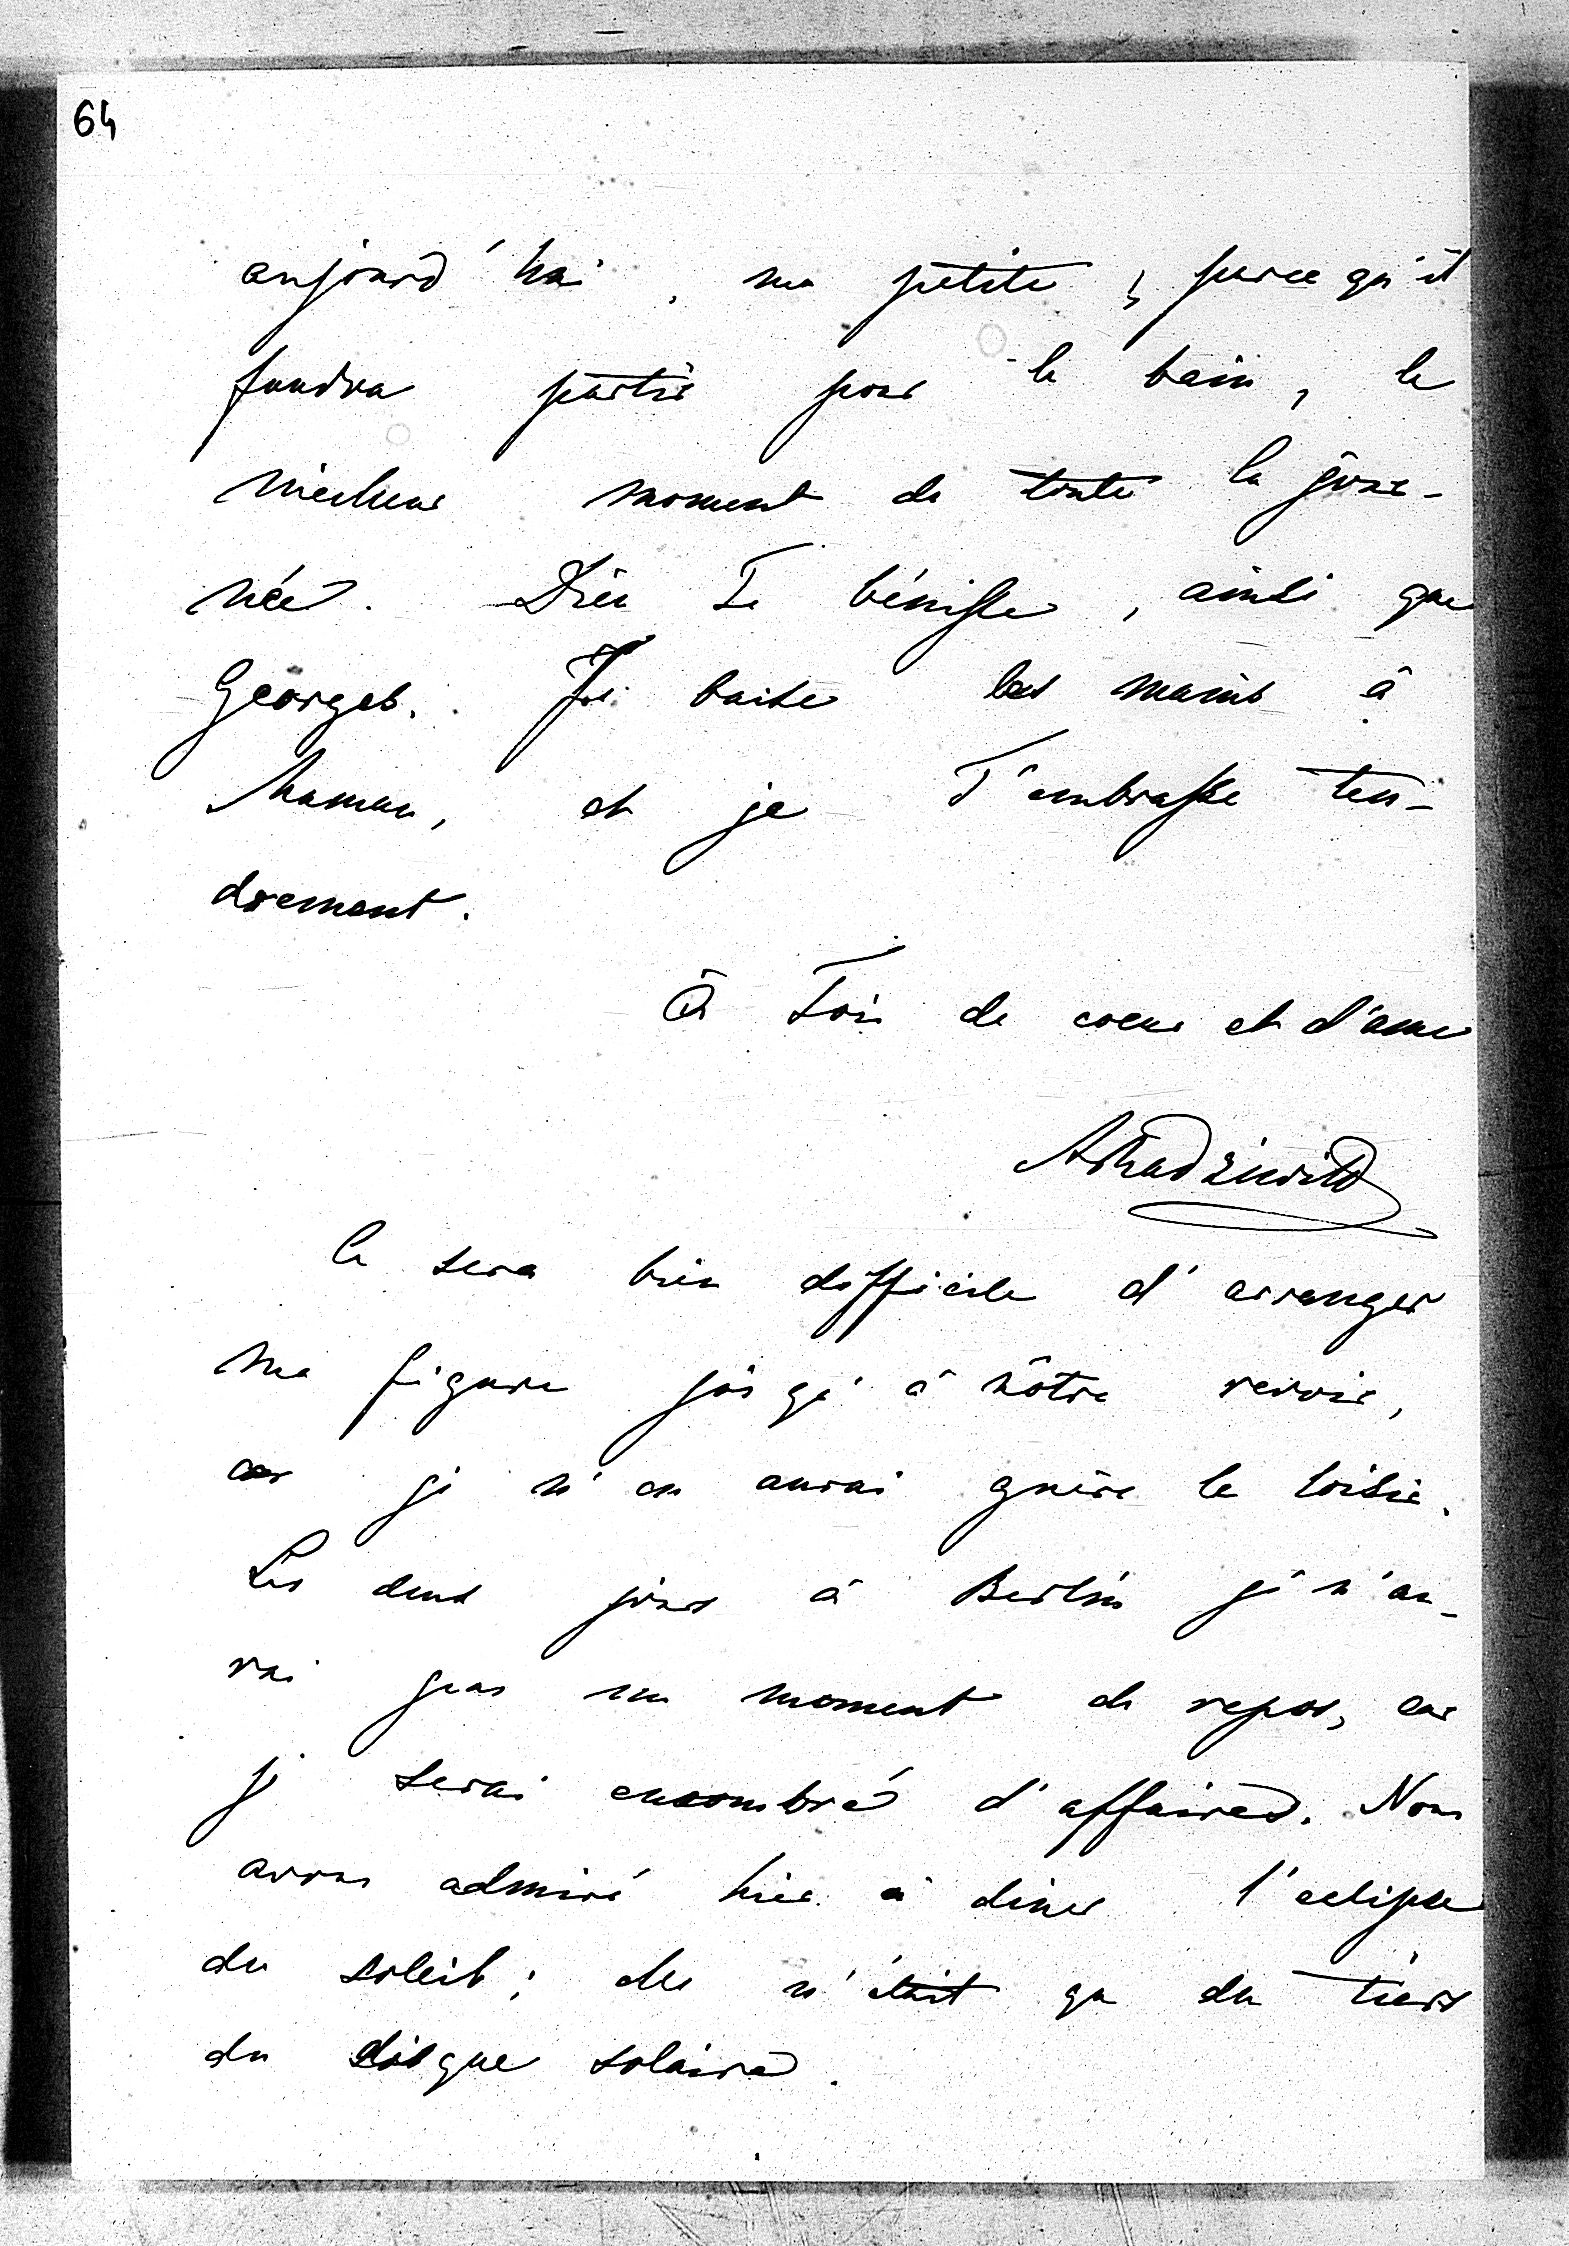 64
aujourd'hui, ma petite, parce qu'il
faudra partir pour le bain, le
meilleur moment de toute la jour-
née. Dieu Te bénisse, ainsi que
Georges. Je baise les mains à
Maman, et je T'embrasse ten-
drement.
À Toi de coeur et d'ame
ARadziwill
Ce sera bien difficile d'arranger
ma figure jusqu'à nôtre revoir,
car je n'en aurai guère le loisir.
Les deux jours à Berlin je n'au-
rai pas un moment de repos, car
je serai encombré d'affaires. Nous
avons admiré hier à diner l'eclipse
du soleil; elle n'était que du tiers
du disque solaire.